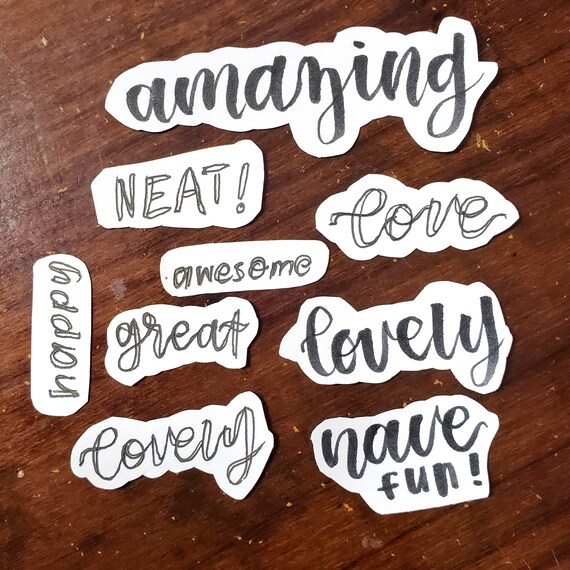 amazing
NEAT!
love
awesome
happy
great
lovely
lovely
have
fun!